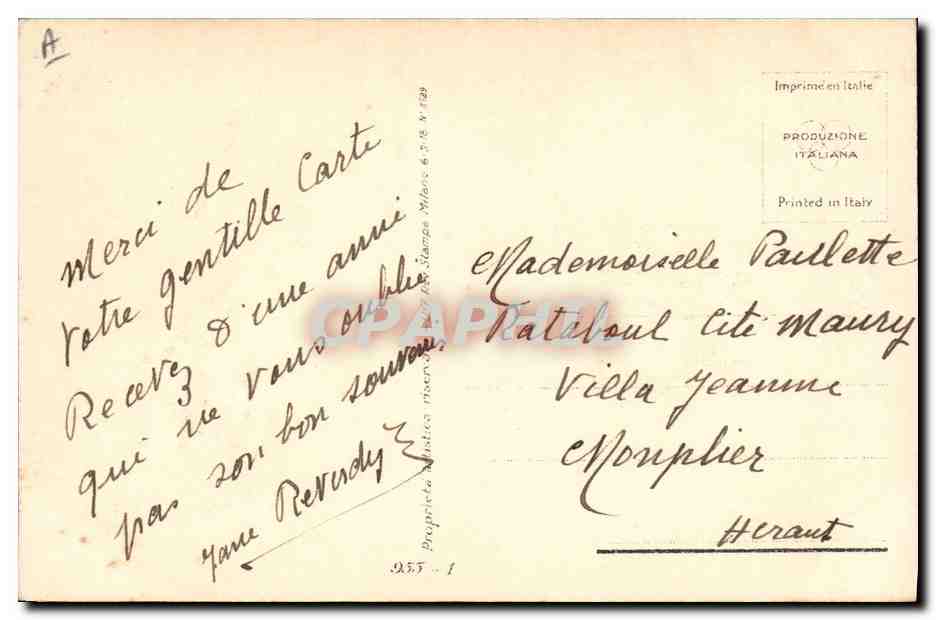 A
Merci de
Votre gentille Carte
Recevez d'une amie
qui ne vous oublie
pas son bon souvenir
Jane Reverdy
Proprietà artistica riservata Stampa Milano 6-3-18 N° 8529
955-1
Imprimé en Italie
PRODUZIONE
ITALIANA
Printed in Italy
Mademoiselle Paulette
Rataboul Cité Maury
Villa Jeanne
Monplier
Heraut
CPAPHIL